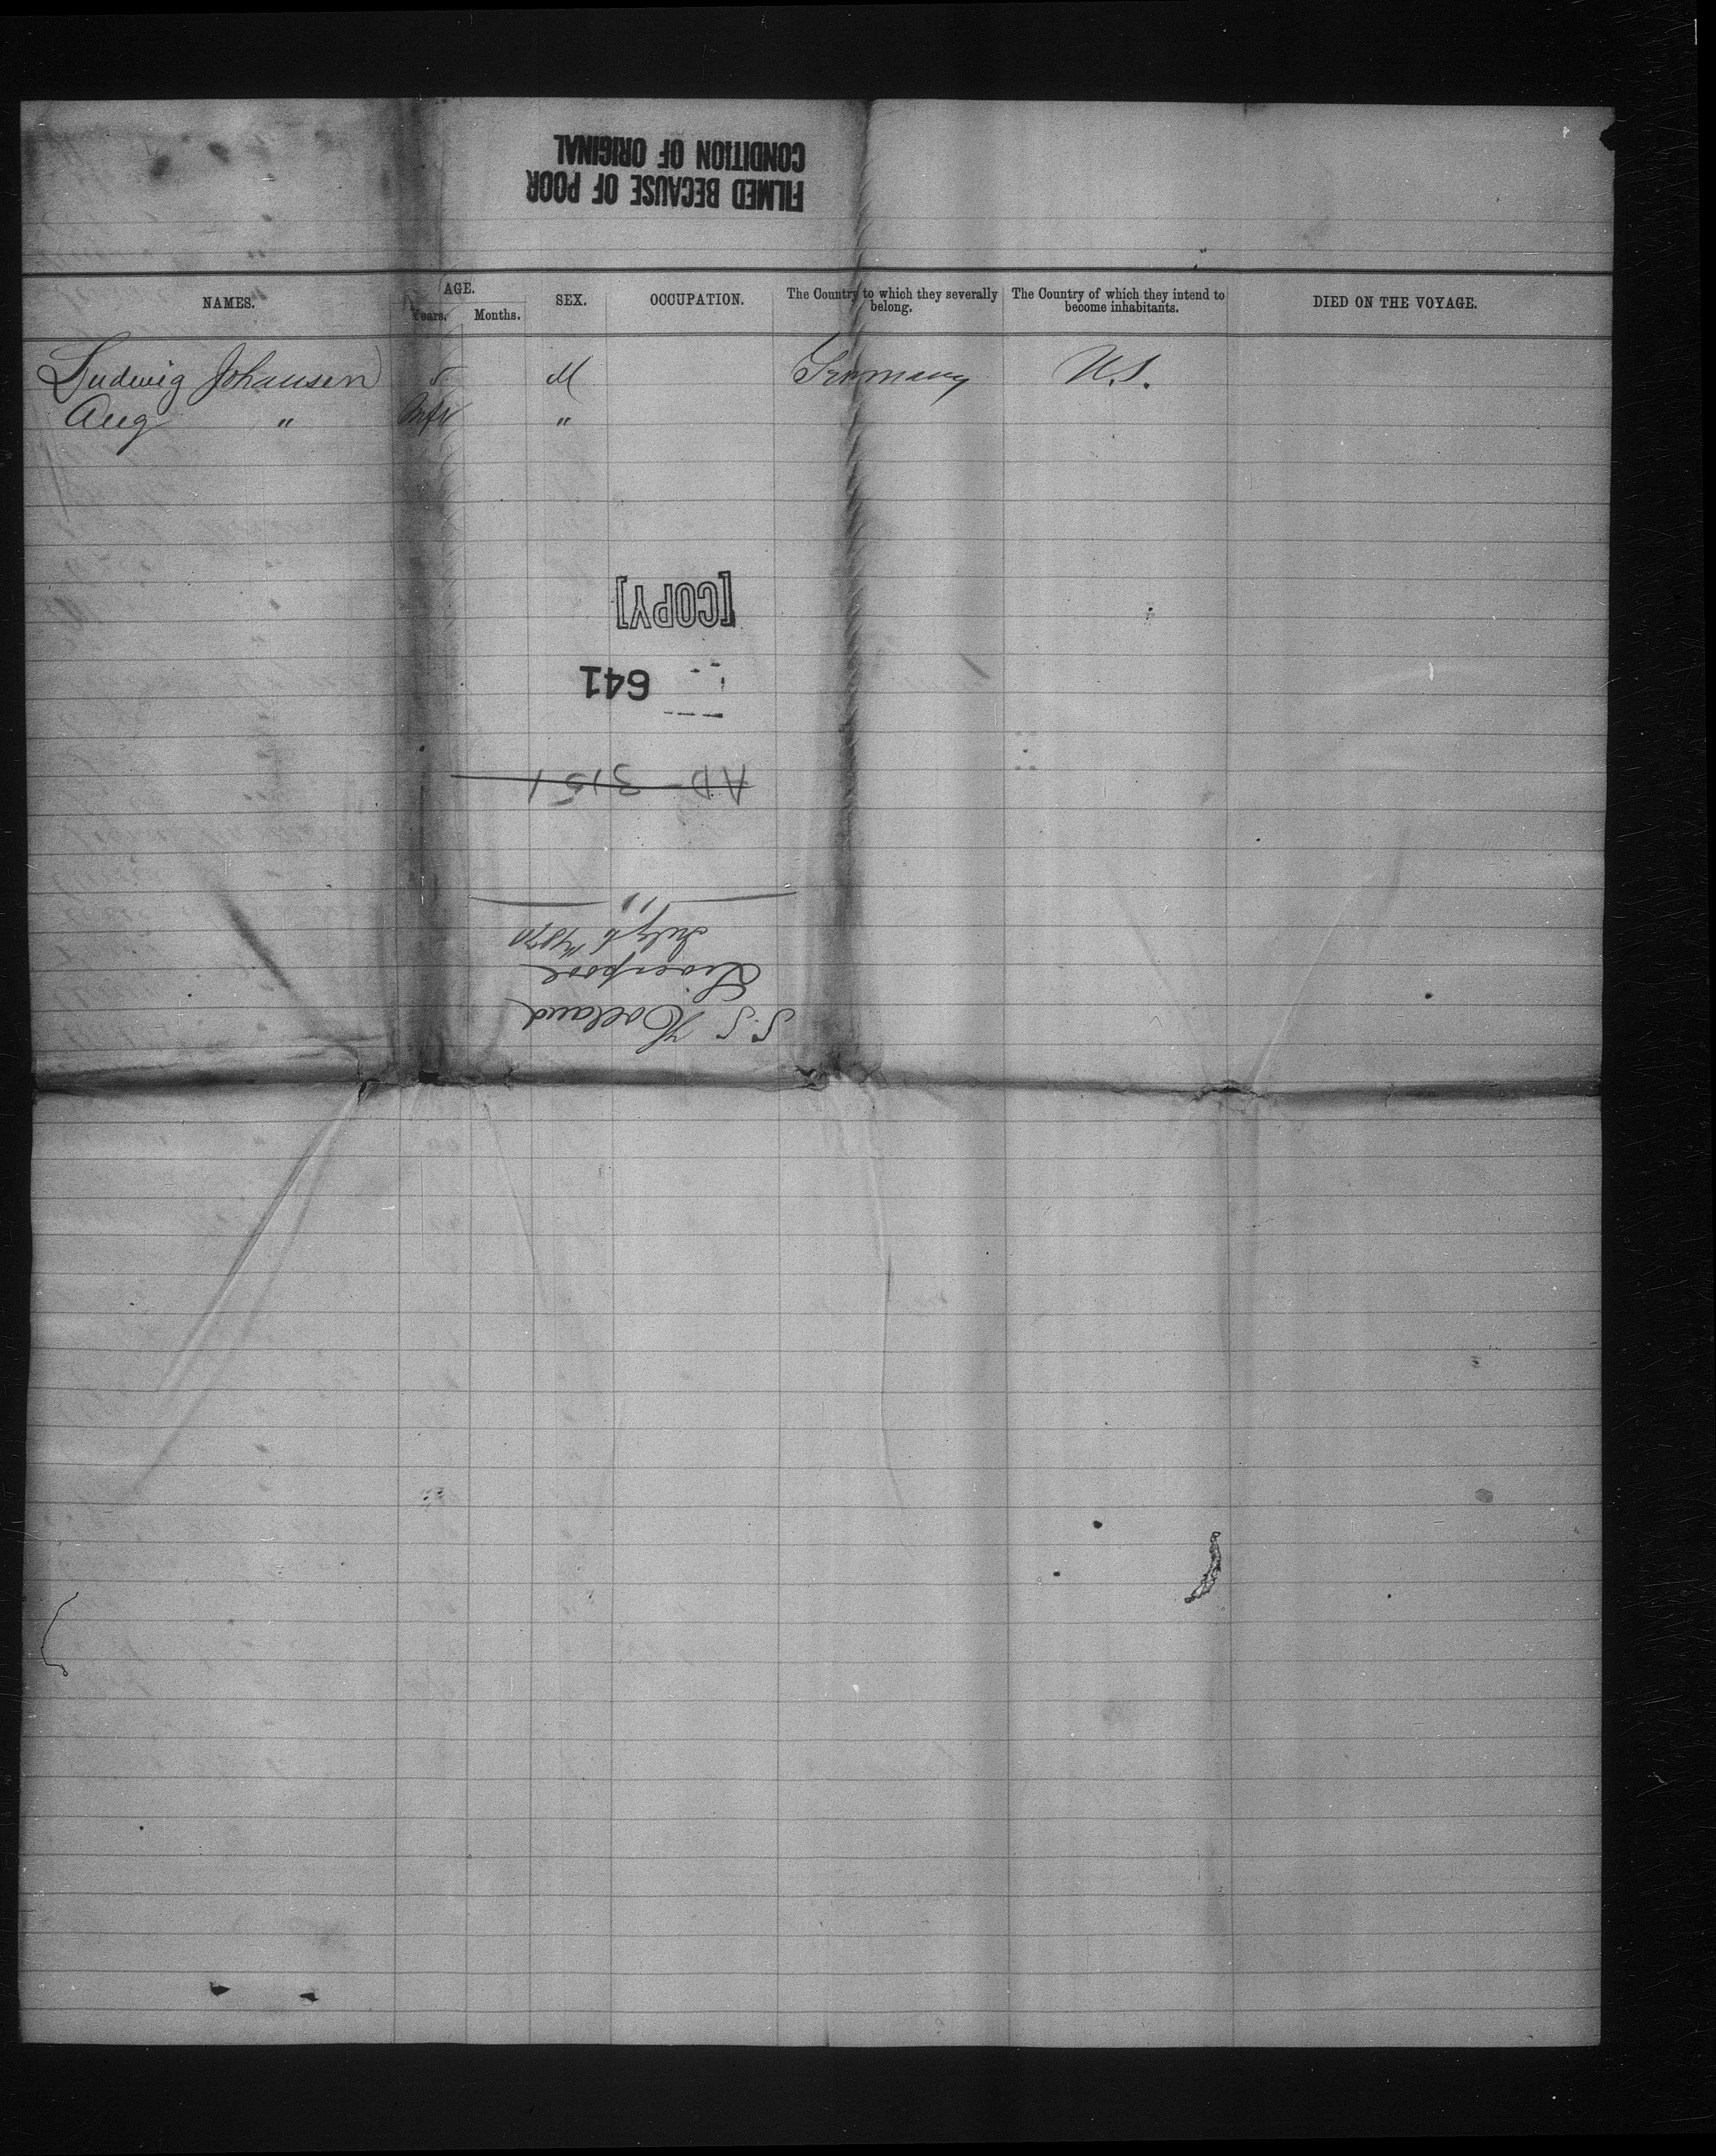 FILMED BECAUSE OF POOR
CONDITION OF ORIGINAL
NAMES. AGE. SEX. OCCUPATION. The Country to which they severally belong. The Country of which they intend to become inhabitants. DIED ON THE VOYAGE.
Years. Months.
Ludwig Johansen 5 M Germany U.S.
Aug " Inft "
[COPY]
641
AD-3151
S.S Holland
Liverpool
July 6